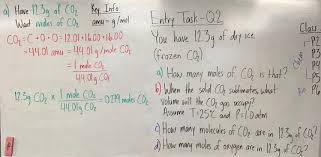 a) Have 12.3g of CO₂
Want moles of CO₂
Key Info
amu = g/mol
CO₂ = C + O + O = 12.01 + 16.00 + 16.00
= 44.01 amu = 44.01 g/mole CO₂
= 1 mole CO₂
44.01g CO₂
12.3g CO₂ × 1 mole CO₂ = 0.279 moles CO₂
44.01g CO₂
Entry Task - Q2
You have 12.3g of dry ice
(frozen CO₂)
a) How many moles of CO₂ is that?
b) When the solid CO₂ sublimates, what
volume will the CO₂ gas occupy?
Assume T=25°C and P=1.0 atm
c) How many molecules of CO₂ are in 12.3g of CO₂?
d) How many moles of oxygen are in 12.3g of CO₂?
Class
P2
P3
P4
P5
P6